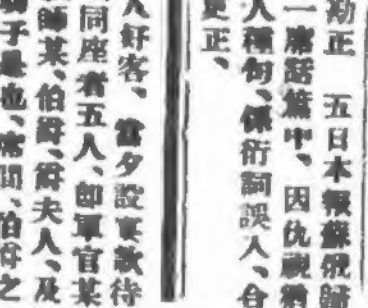 勘正　五日本報蘇俄歸
一席話篇中、因仇視猶
人種句、係衍詞誤入、合
更正、
人好客、當夕設宴欵待
同座者五人、卽軍官某
師某、伯爵、爵夫人、及
子是也、席間、伯爵之